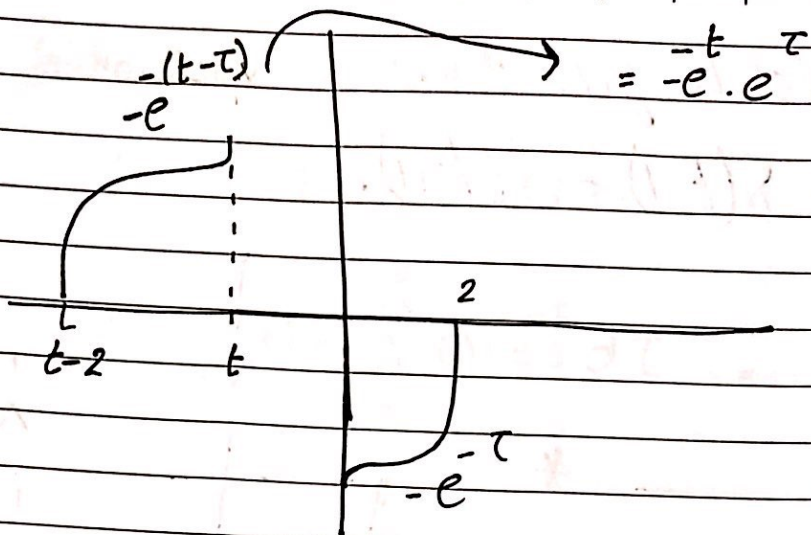 -e^{-(t-τ)} = -e^{-t} . e^{τ}
2
t-2 t
-e^{-τ}